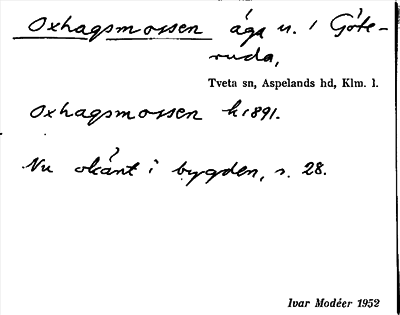 Oxhagsmossen äga n. 1 Göte-
ruda,
Tveta sn, Aspelands hd, Klm. l.
Oxhagsmossen k1891.
Nu okänt i bygden, s. 28.
Ivar Modéer 1952